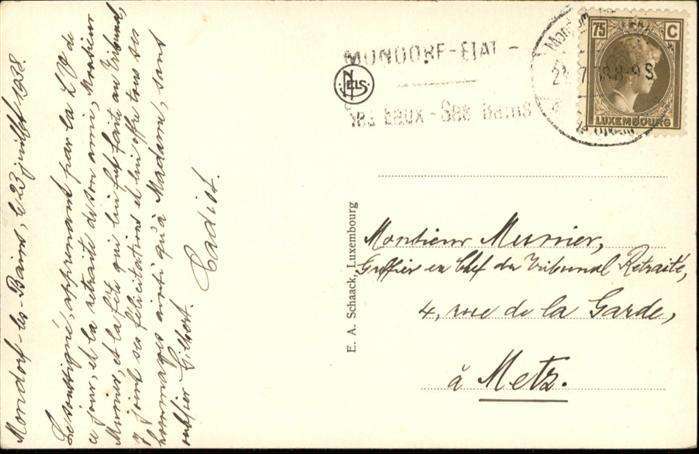 Mondorf-les Bains, le 23 juillet 1938.
Le soussigné, apprenant par la L de
ce jour, et la retraite de son ami, Monsieur
Munier, et la fête qui lui fut faite au Tribunal,
y joint ses félicitations et lui offre tous ses
hommages ainsi qu'à Madame, sans
oublier Gilbert.
Cadiot.
MONDORF-ETAT-
Ses Eaux - Ses Bains
NELS
75 C
LUXEMBOURG
E. A. Schaack, Luxembourg
Monsieur Munier,
Greffier en Chef du Tribunal Retraité,
4, rue de la Garde,
à Metz.